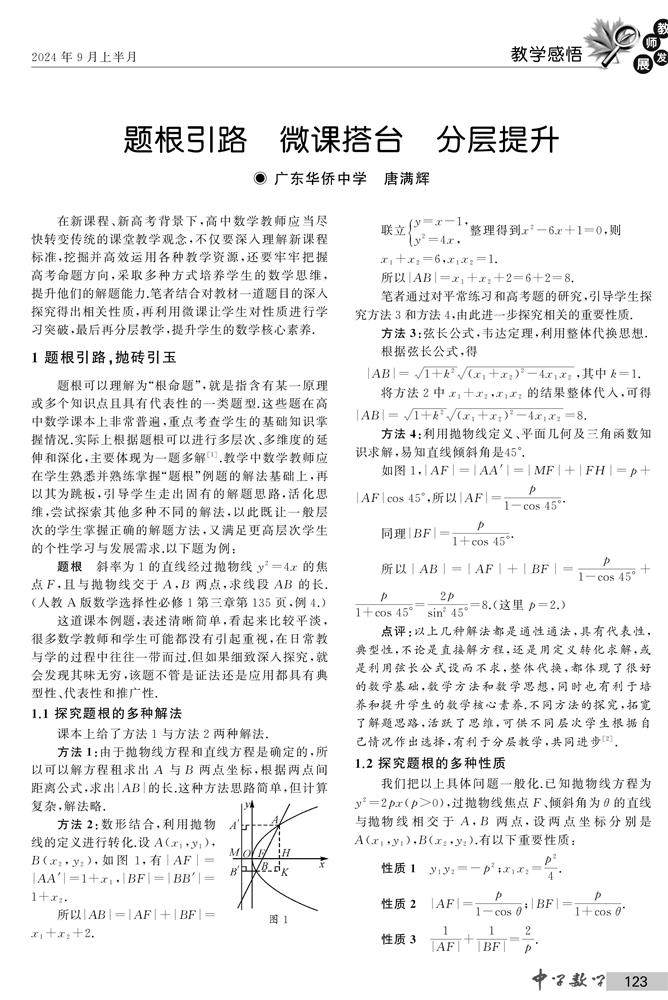 2024 年 9 月上半月
教学感悟
教师发展
题根引路 微课搭台 分层提升
◉ 广东华侨中学 唐满辉
在新课程、新高考背景下,高中数学教师应当尽
快转变传统的课堂教学观念,不仅要深入理解新课程
标准,挖掘并高效运用各种教学资源,还要牢牢把握
高考命题方向,采取多种方式培养学生的数学思维,
提升他们的解题能力.笔者结合对教材一道题目的深入
探究得出相关性质,再利用微课让学生对性质进行学
习突破,最后再分层教学,提升学生的数学核心素养.
1 题根引路,抛砖引玉
题根可以理解为“根命题”,就是指含有某一原理
或多个知识点且具有代表性的一类题型.这些题在高
中数学课本上非常普遍,重点考查学生的基础知识掌
握情况.实际上根据题根可以进行多层次、多维度的延
伸和深化,主要体现为一题多解[1].教学中数学教师应
在学生熟悉并熟练掌握“题根”例题的解法基础上,再
以其为跳板,引导学生走出固有的解题思路,活化思
维,尝试探索其他多种不同的解法,以此既让一般层
次的学生掌握正确的解题方法,又满足更高层次学生
的个性学习与发展需求.以下题为例:
题根 斜率为 1 的直线经过抛物线 y²=4x 的焦
点 F,且与抛物线交于 A,B 两点,求线段 AB 的长.
(人教 A 版数学选择性必修 1 第三章第 135 页,例 4.)
这道课本例题,表述清晰简单,看起来比较平淡,
很多数学教师和学生可能都没有引起重视,在日常教
与学的过程中往往一带而过.但如果细致深入探究,就
会发现其味无穷,该题不管是证法还是应用都具有典
型性、代表性和推广性.
1.1 探究题根的多种解法
课本上给了方法 1 与方法 2 两种解法.
方法 1:由于抛物线方程和直线方程是确定的,所
以可以解方程租求出 A 与 B 两点坐标,根据两点间
距离公式,求出|AB|的长.这种方法思路简单,但计算
复杂,解法略.
方法 2:数形结合,利用抛物
线的定义进行转化.设 A(x₁,y₁),
B(x₂,y₂),如图 1,有|AF|=
|AA′|=1+x₁,|BF|=|BB′|=
1+x₂.
所以|AB|=|AF|+|BF|=
x₁+x₂+2.
y
A′ A
M O F H
x
B′ B K
图 1
联立{y=x−1, y²=4x, 整理得到x²−6x+1=0,则
x₁+x₂=6,x₁x₂=1.
所以|AB|=x₁+x₂+2=6+2=8.
笔者通过对平常练习和高考题的研究,引导学生探
究方法 3 和方法 4,由此进一步探究相关的重要性质.
方法 3:弦长公式,韦达定理,利用整体代换思想.
根据弦长公式,得
|AB|=√(1+k²)√((x₁+x₂)²−4x₁x₂),其中 k=1.
将方法 2 中 x₁+x₂,x₁x₂ 的结果整体代入,可得
|AB|=√(1+k²)√((x₁+x₂)²−4x₁x₂)=8.
方法 4:利用抛物线定义、平面几何及三角函数知
识求解,易知直线倾斜角是45°.
如图 1,|AF|=|AA′|=|MF|+|FH|=p+
|AF|cos 45°,所以|AF|=p/(1−cos 45°).
同理|BF|=p/(1+cos 45°).
所以|AB|=|AF|+|BF|=p/(1−cos 45°)+
p/(1+cos 45°)=2p/sin² 45°=8.(这里 p=2.)
点评:以上几种解法都是通性通法,具有代表性,
典型性,不论是直接解方程,还是用定义转化求解,或
是利用弦长公式设而不求,整体代换,都体现了很好
的数学基础,数学方法和数学思想,同时也有利于培
养和提升学生的数学核心素养.不同方法的探究,拓宽
了解题思路,活跃了思维,可供不同层次学生根据自
己情况作出选择,有利于分层教学,共同进步[2].
1.2 探究题根的多种性质
我们把以上具体问题一般化.已知抛物线方程为
y²=2px(p>0),过抛物线焦点 F、倾斜角为 θ 的直线
与抛物线相交于 A,B 两点,设两点坐标分别是
A(x₁,y₁),B(x₂,y₂).有以下重要性质:
性质 1 y₁y₂=−p²;x₁x₂=p²/4.
性质 2 |AF|=p/(1−cos θ);|BF|=p/(1+cos θ).
性质 3 1/|AF|+1/|BF|=2/p.
中学数学 123